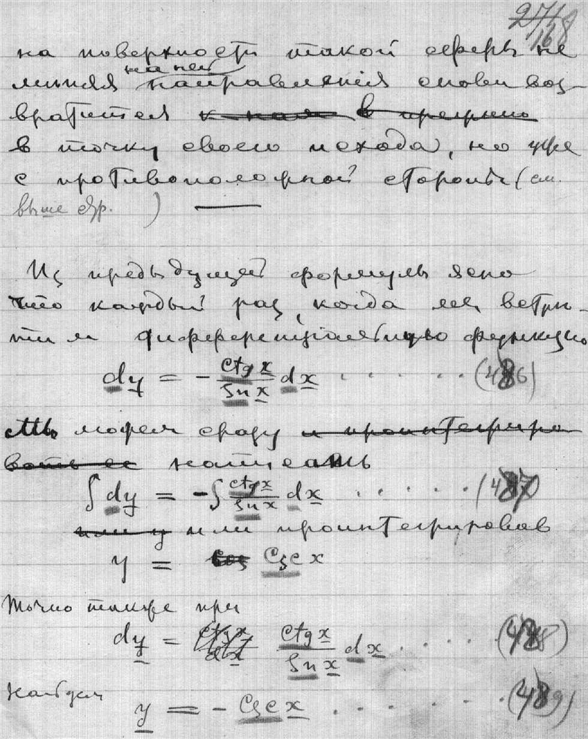 168
на поверхности такой сферы не
меняя на ней направления снова воз-
вратится
в точку своего исхода, но уже
с противоположной стороны (см.
выше стр. ) —
Из предыдущей формулы ясно
что каждый раз, когда мы встре-
тим дифференциальную функцию
dy = - ctg x / sn x dx . . . . . (486)
Мы можем сразу и проинтегриро-
вать ее написать
∫ dy = -∫ ctg x / sn x dx . . . . . (487)
или у или проинтегрировав
y = Csc x
Точно также при
dy = ctg x / sn x dx . . . . . (488)
найдем
y = - Csc x . . . . . . (489)